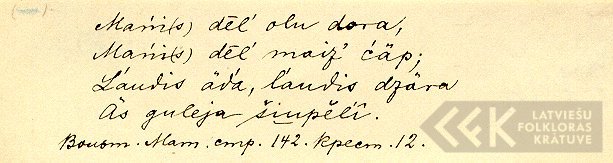 Mańi(s) dēļ olu dora,
Mańi(s) dēļ maiz' ćäp;
Ĺaudis äďa, ľaudis dzära
Äs guleja šiupēlī.
Волот. Мат. стр. 142. Крест. 12.
LATVIEŠU
FOLKLORAS
KRĀTUVE